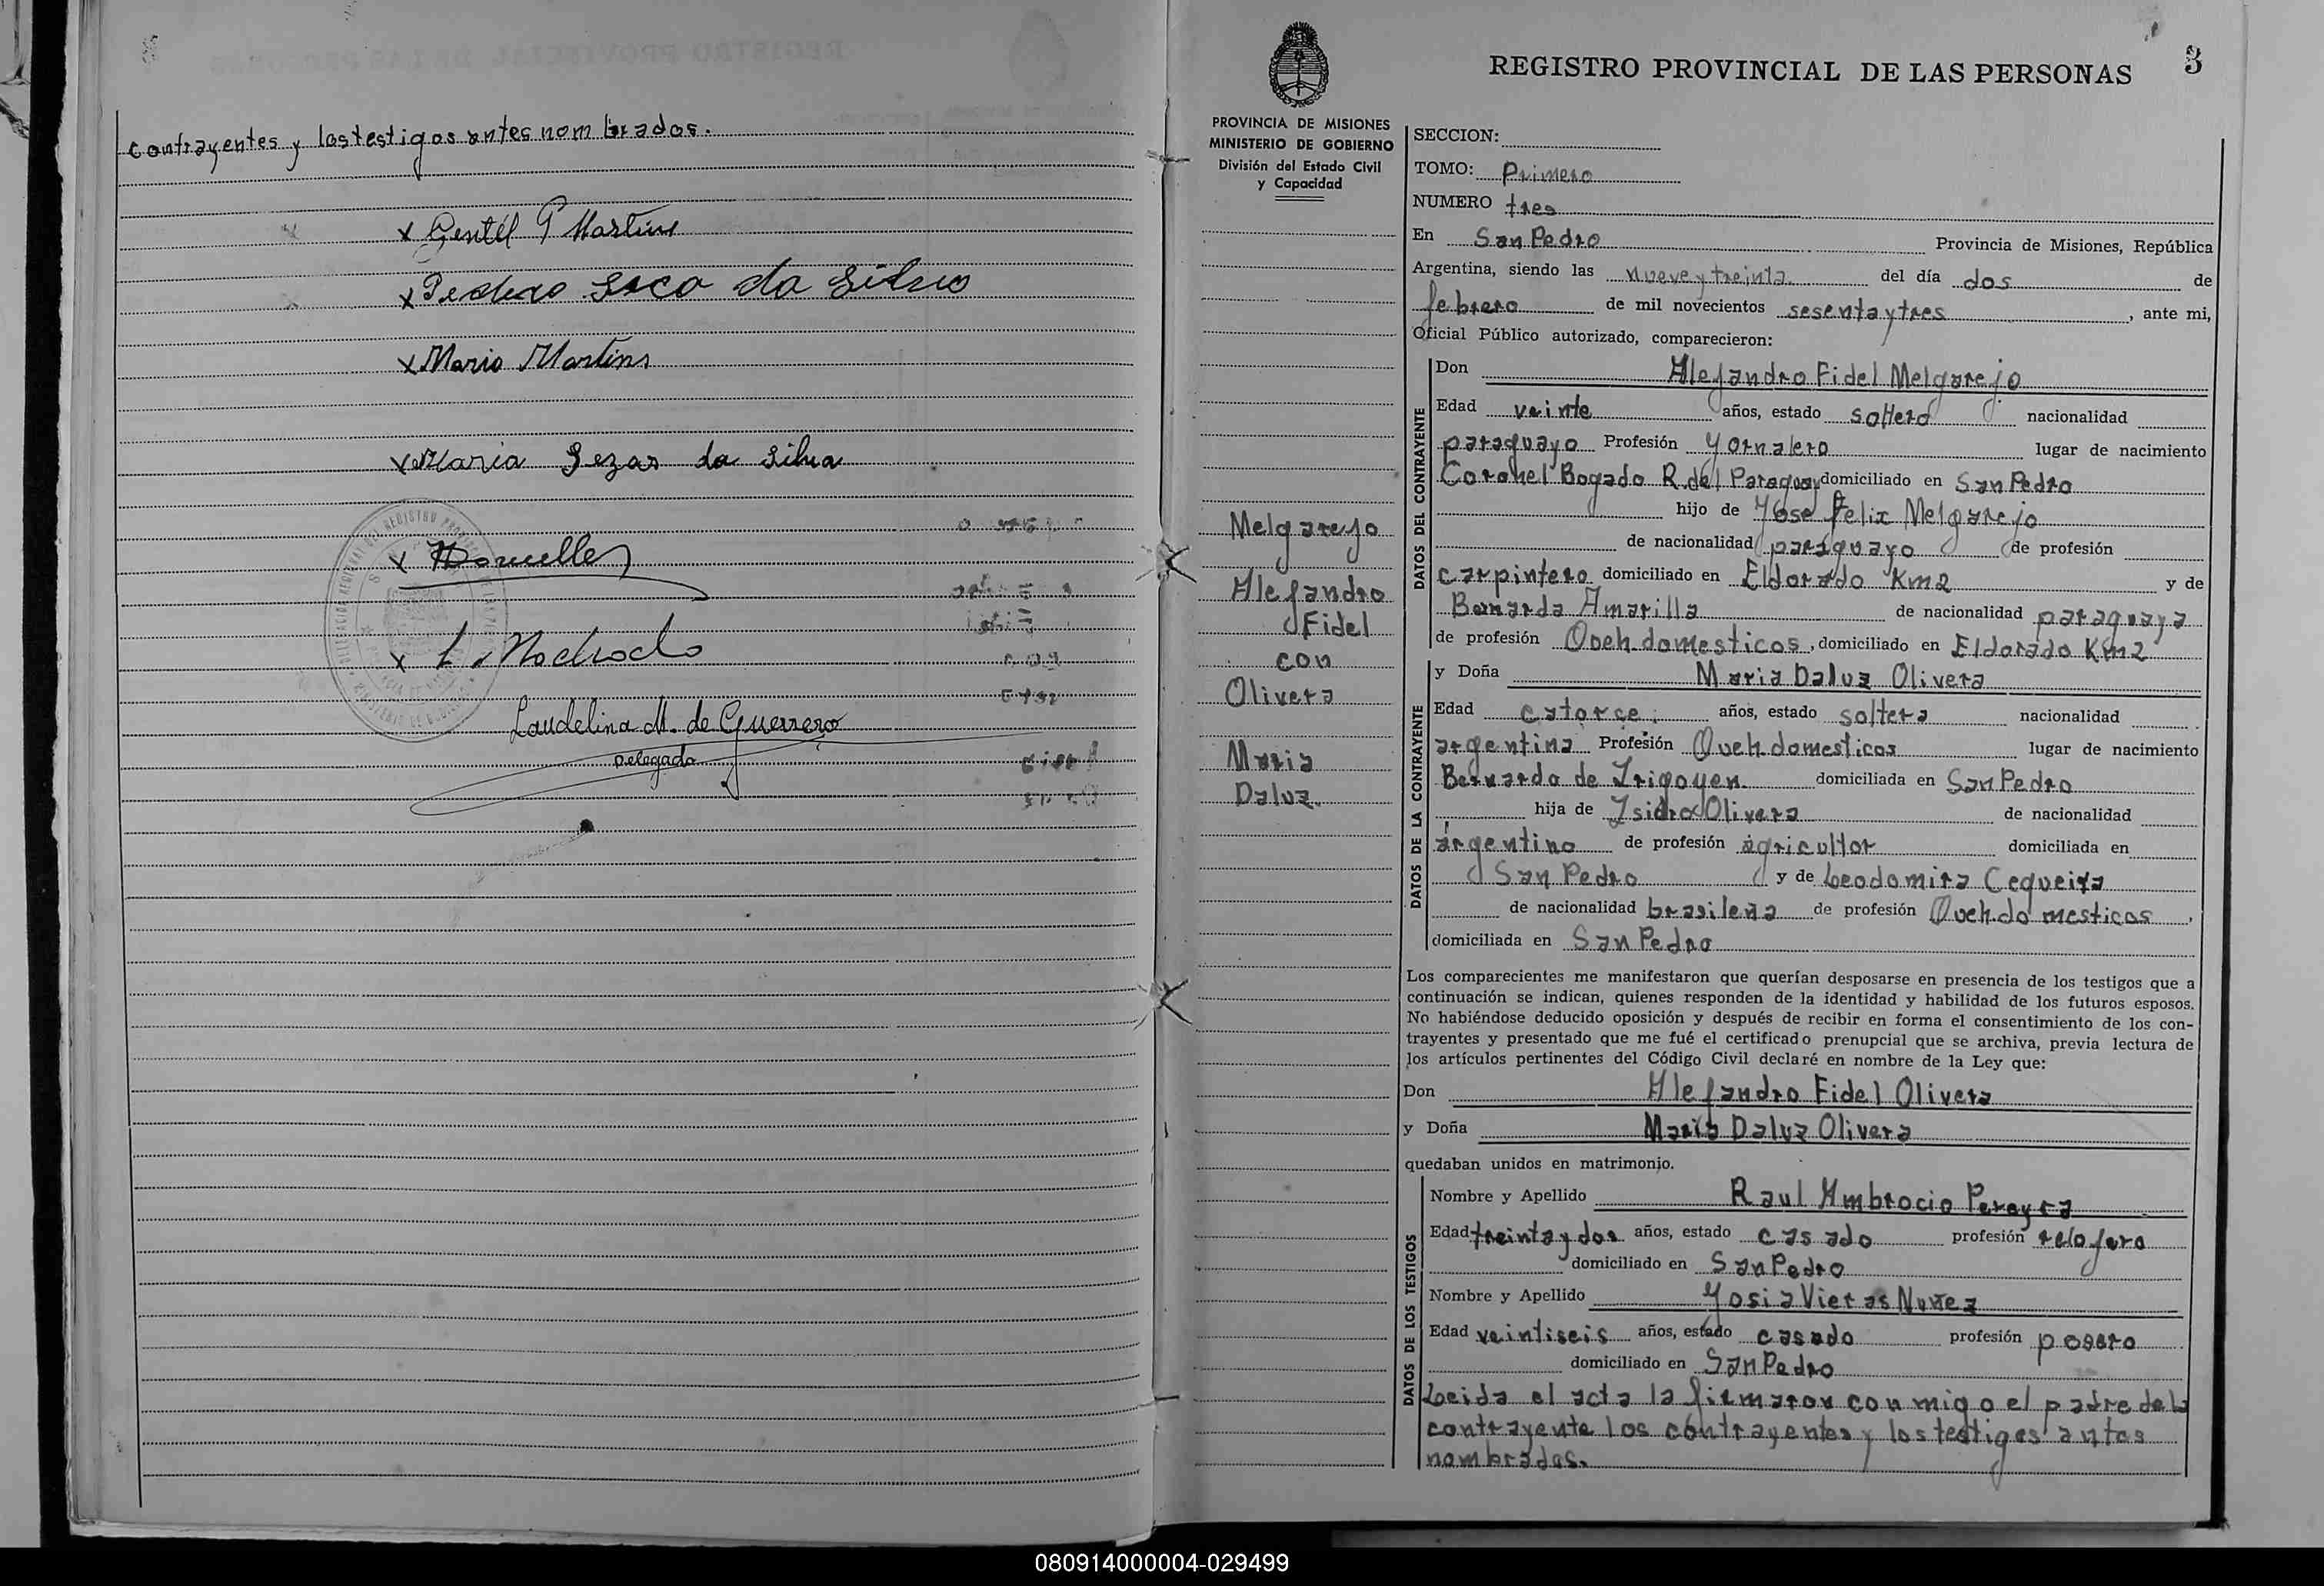 contrayentes y los testigos antes nombrados.
x Gentil P Martins
x Pedro Seco da Silva
x Mario Martins
x Maria da Silva
x
x L. Machado
Laudelina M. de Guerrero
Delegada
REGISTRO PROVINCIAL DE LAS PERSONAS
3
PROVINCIA DE MISIONES
MINISTERIO DE GOBIERNO
División del Estado Civil
y Capacidad
Melgarejo
Alejandro
Fidel
con
Olivera
Maria
Daluz.
SECCION:
TOMO: Primero
NUMERO tres
En San Pedro Provincia de Misiones, República
Argentina, siendo las nueve y treinta del día dos de
febrero de mil novecientos sesenta y tres, ante mi,
Oficial Público autorizado, comparecieron:
DATOS DEL CONTRAYENTE
Don Alejandro Fidel Melgarejo
Edad veinte años, estado soltero nacionalidad
paraguayo Profesión Yornalero lugar de nacimiento
Coronel Bogado R.del Paraguay domiciliado en San Pedro
hijo de Yose felix Melgarejo
de nacionalidad paraguayo de profesión
carpintero domiciliado en Eldorado Km2 y de
Bernarda Amarilla de nacionalidad paraguaya
de profesión Queh.domesticos, domiciliado en Eldorado Km2
DATOS DE LA CONTRAYENTE
y Doña Maria Daluz Olivera
Edad catorce. años, estado soltera nacionalidad
argentina Profesión Queh domesticos lugar de nacimiento
Bernardo de Irigoyen. domiciliada en San Pedro
hija de Isidro Olivera de nacionalidad
argentino de profesión agricultor domiciliada en
San Pedro y de Leodomira Cequeira
de nacionalidad brasileña de profesión Queh.domesticos,
domiciliada en San Pedro
Los comparecientes me manifestaron que querían desposarse en presencia de los testigos que a
continuación se indican, quienes responden de la identidad y habilidad de los futuros esposos.
No habiéndose deducido oposición y después de recibir en forma el consentimiento de los con-
trayentes y presentado que me fué el certificado prenupcial que se archiva, previa lectura de
los artículos pertinentes del Código Civil declaré en nombre de la Ley que:
Don Alejandro Fidel Olivera
y Doña Maria Daluz Olivera
quedaban unidos en matrimonio.
DATOS DE LOS TESTIGOS
Nombre y Apellido Raul Ambrocio Pereyra
Edad treinta y dos años, estado casado profesión relojero
domiciliado en San Pedro
Nombre y Apellido Yosia Vieras Nuñez
Edad veintiseis años, estado casado profesión posero
domiciliado en San Pedro
Leida el acta la firmaron conmigo el padre de la
contrayente los contrayentes y los testigos antes
nombrados.
080914000004-029499